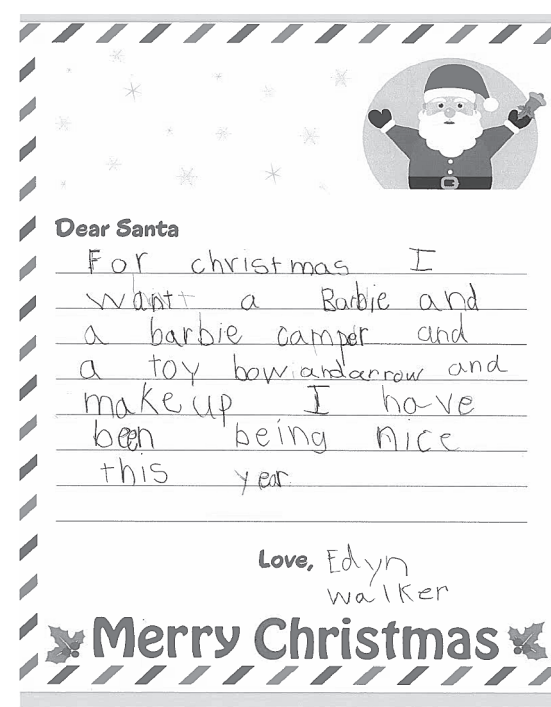 Dear Santa
For christmas I
wantt a Barbie and
a barbie camper and
a toy bow andarrow and
makeup I have
been being nice
this year.
Love, Edyn
walker
Merry Christmas